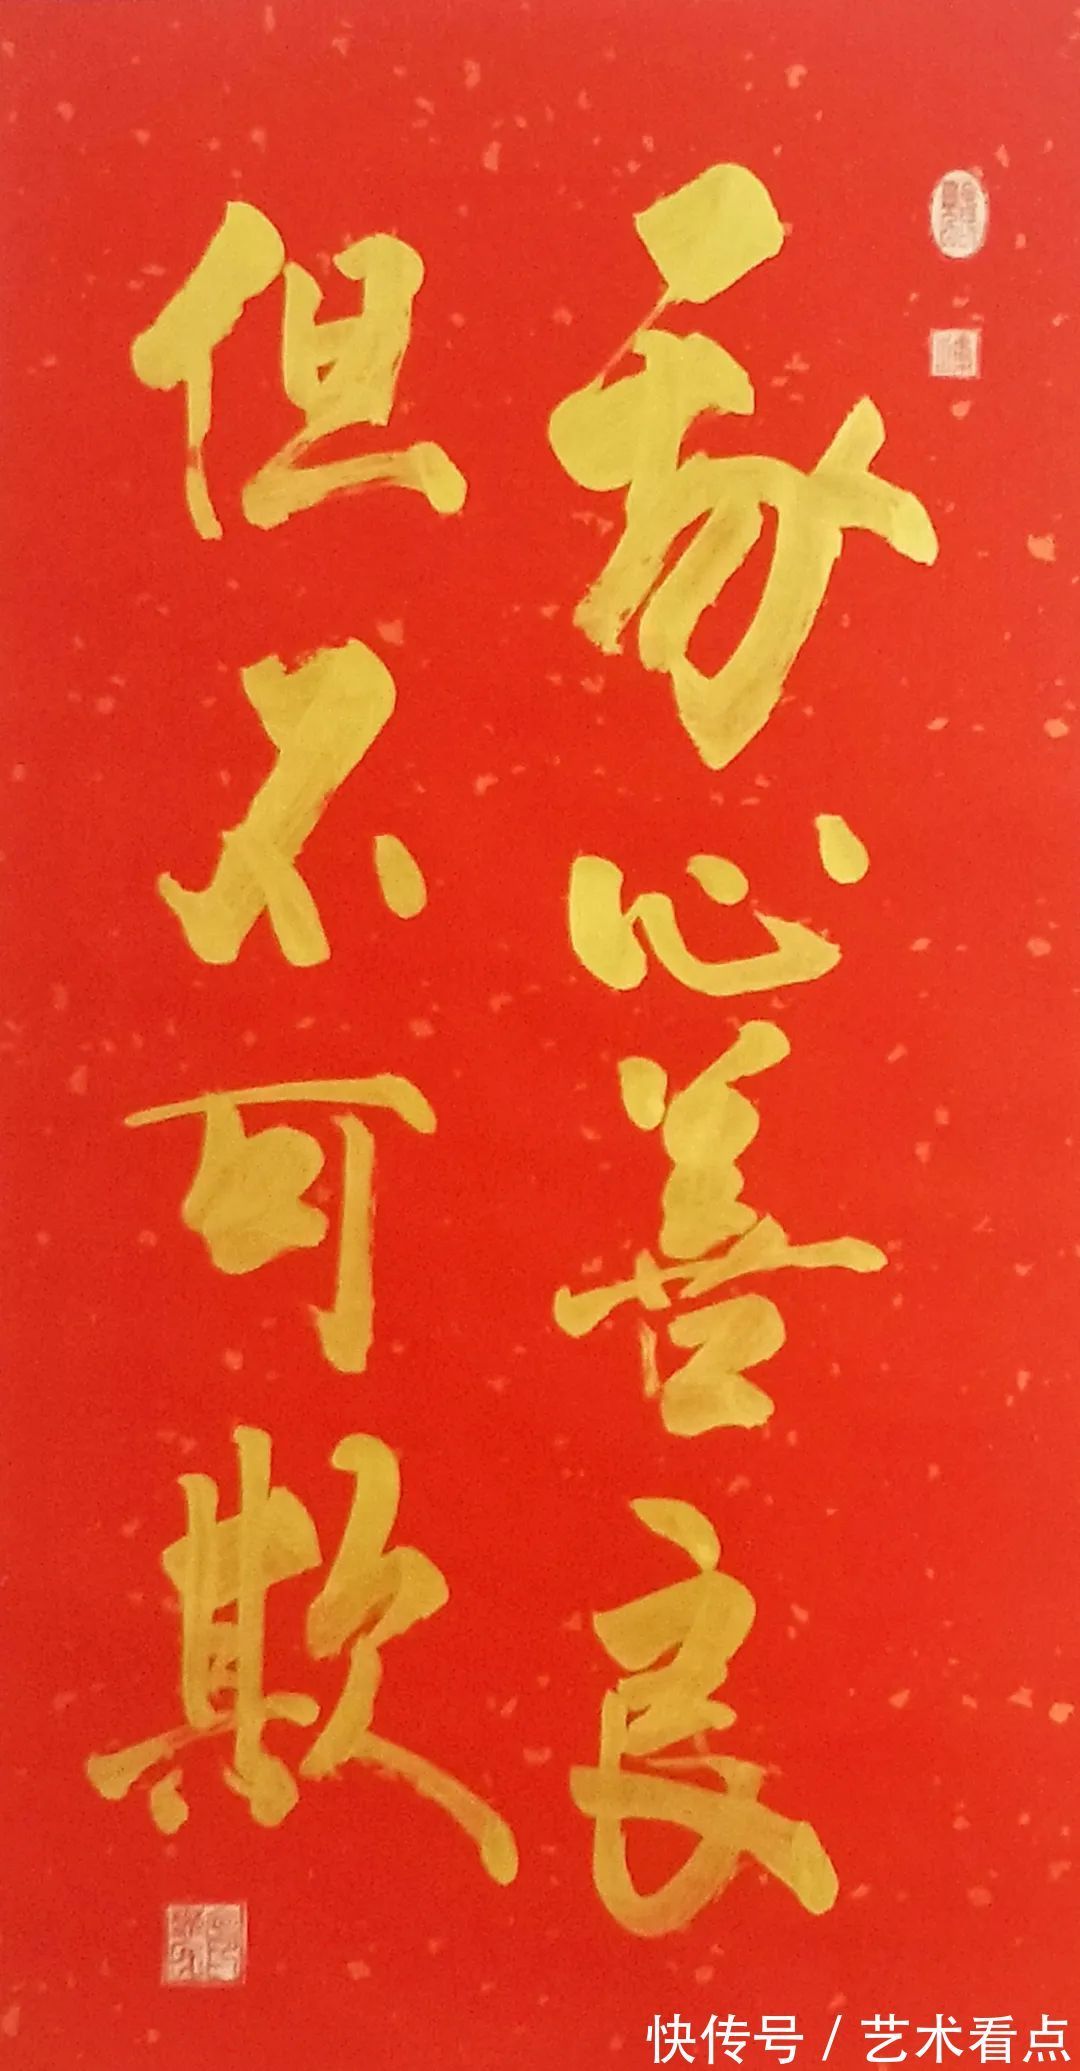 我心善良
但不可欺
快传号 / 艺术看点